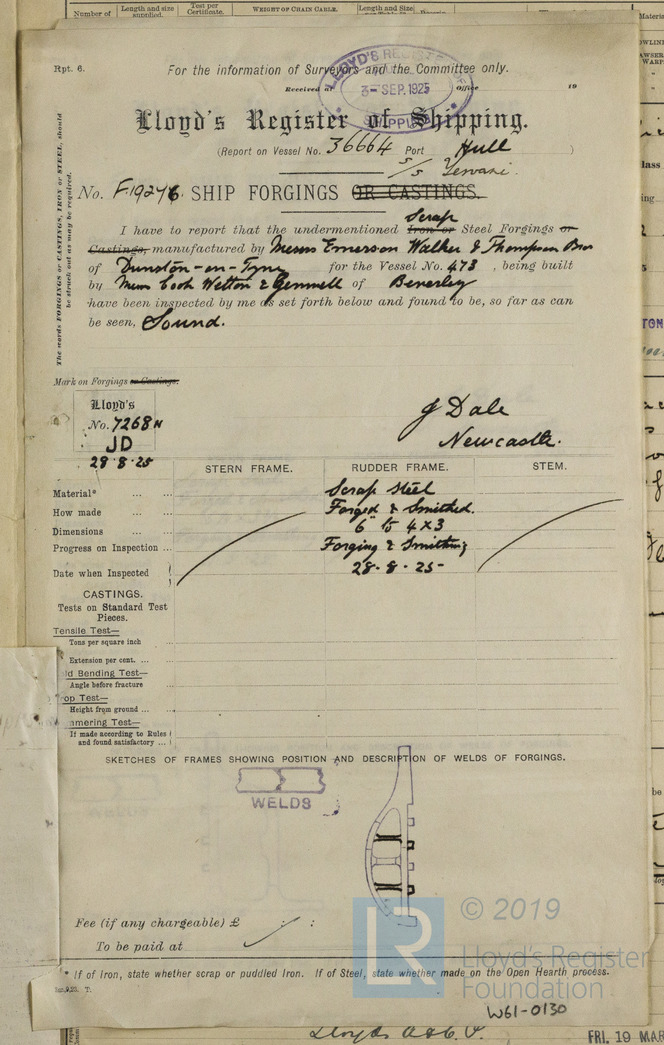 Number of
Length and size supplied.
Test per Certificate.
WEIGHT OF CHAIN CABLE.
Length and Size
Rpt. 6.
For the information of Surveyors and the Committee only.
Received at
Office
19
LLOYD'S REGISTER OF SHIPPING
3-SEP.1925
Lloyd's Register of Shipping.
(Report on Vessel No. 36664 Port Hull )
S/S
No. F.19276. SHIP FORGINGS OR CASTINGS.
The words FORGINGS or CASTINGS, IRON or STEEL, should be struck out as may be required.
Scrap
I have to report that the undermentioned Iron or Steel Forgings or
Castings, manufactured by Messrs Emerson Walker & Thompson Bros
of Dunston-on-Tyne for the Vessel No. 473 , being built
by Messrs Cook Welton & Gemmell of Beverley
have been inspected by me as set forth below and found to be, so far as can
be seen, Sound.
Mark on Forgings or Castings.
Lloyd's
No. 7268 N
JD
28·8·25
J Dale
Newcastle.
STERN FRAME.
RUDDER FRAME.
STEM.
Material* ... ... Scrap Steel
How made ... ... Forged & Smithed.
Dimensions ... ... 6" to 4 x 3
Progress on Inspection ... Forging & Smithing
Date when Inspected 28·8·25-
CASTINGS.
Tests on Standard Test
Pieces.
Tensile Test—
Tons per square inch ...
Extension per cent. ... ...
ld Bending Test—
Angle before fracture ...
op Test—
Height from ground ... ...
mmering Test—
If made according to Rules
and found satisfactory ...
SKETCHES OF FRAMES SHOWING POSITION AND DESCRIPTION OF WELDS OF FORGINGS.
WELDS
Fee (if any chargeable) £ : :
To be paid at
* If of Iron, state whether scrap or puddled Iron. If of Steel, state whether made on the Open Hearth process.
LR
© 2019
Lloyd's Register
Foundation
W61-0130
FRI. 19 MAR